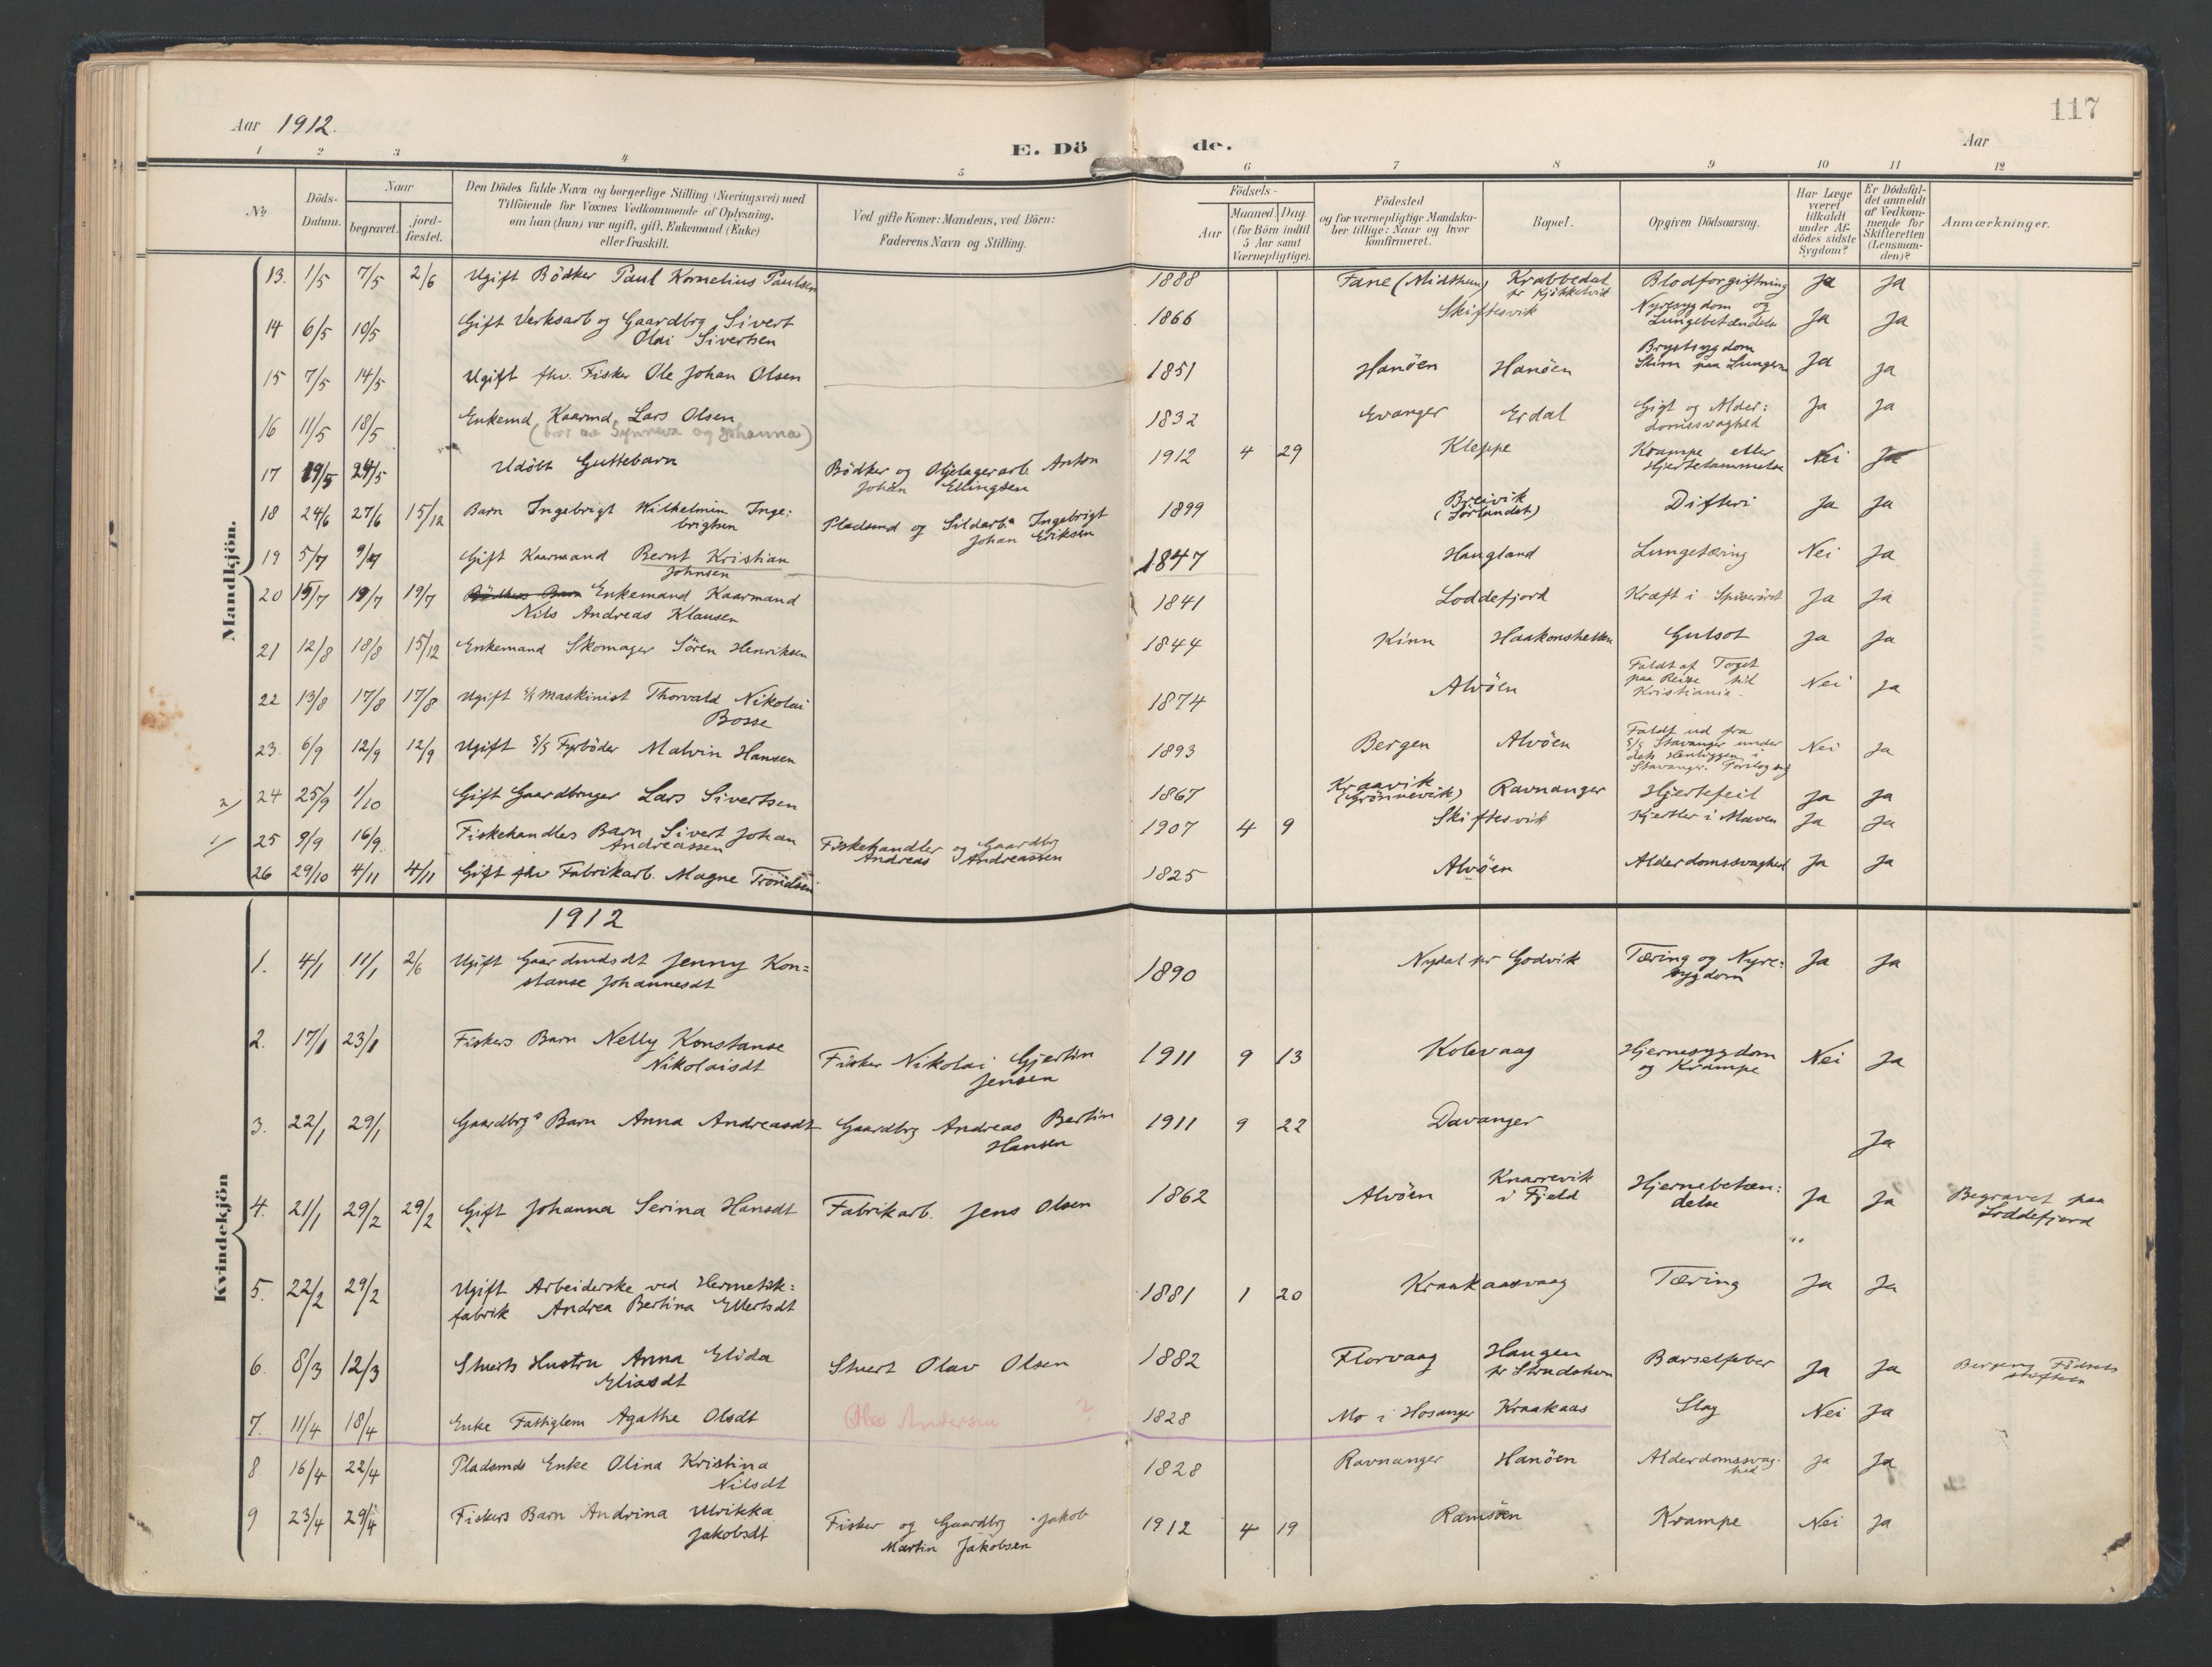 117
Aar 1912.
E. Dö de.
Aar
1 2 3 4 5 6 7 8 9 10 11 12
No
Döds-
Datum.
Naar
begravet.
jord-
fæstet.
Den Dödes fulde Navn og borgerlige Stilling (Næringsvei) med
Tilföiende for Voxnes Vedkommende af Oplysning,
om han (hun) var ugift, gift, Enkemand (Enke)
eller fraskilt.
Ved gifte Koner: Mandens, ved Börn:
Faderens Navn og Stilling.
Födsels-
Aar
Maaned. Dag.
(for Börn indtil
5 Aar samt
Værnepligtige).
Födested
og for værnepligtige Mandska-
ber tillige: Naar og hvor
konfirmeret.
Bopæl.
Opgiven Dödsaarsag.
Har Læge
været
tilkaldt
under Af-
dödes sidste
Sygdom?
Er Dödsfal-
det anmeldt
af Vedkom-
mende for
Skifteretten
(Lensman-
den)?
Anmærkninger.
Mandkjön.
13. 1/5 7/5 2/6 Ugift Bödker Paul Kornelius Paulsen 1888 Fane (Midthun) Krabbedal Blodforgiftning Ja Ja
pr Kjökkelvik
14 6/5 10/5 Gift Verksarb og Gaardbrg Sivert 1866 Skiftesvik Nyresygdom og Ja Ja
Olai Sivertsen Lungebetændelse
15 7/5 14/5 Ugift fhv. Fisker Ole Johan Olsen 1851 Hanöen Hanöen Brystsygdom Ja Ja
Sliim paa Lungen
16 11/5 18/5 Enkemd Kaarmd Lars Olsen 1832 Evanger Erdal Gigt og Alder: Ja Ja
(bror av Synneva og Johanna) domssvaghed
17 19/5 24/5 Udöbt Guttebarn Bödker og Oljelagerarb. Anton 1912 4 29 Kleppe Krampe eller Nei Ja
Johan Ellingsen Hjertelammelse
18 24/6 27/6 15/12 Barn Ingebrigt Wilhelmin Inge: Pladsmd og Sildarb. Ingebrigt 1899 Breivik Difteri Ja Ja
brigtsen Johan Eriksen (Sörlandet)
19 5/7 9/7 Gift Kaarmand Bernt Kristian 1847 Haugland Lungetæring Nei Ja
Johnsen
20 15/7 19/7 19/7 Bödkers Barn Enkemand Kaarmand 1841 Loddefjord Kræft i Spiseröret Ja Ja
Nils Andreas Klausen
21 12/8 18/8 15/12 Enkemand Skomager Sören Henriksen 1844 Kinn Haakonshellen Gulsot Ja Ja
22 13/8 17/8 17/8 Ugift S/S Maskinist Thorvald Nikolai 1874 Alvöen Faldt af Toget Nei Ja
Bosse paa Reise til
Kristiania
23. 6/9 12/9 12/9 Ugift S/S Fyrböder Malvin Hansen 1893 Bergen Alvöen Faldt ud fra Nei Ja
S/S Stavanger under
dets Henliggen i
Stavanger.
2/ 24 25/9 1/10 Gift Gaardbruger Lars Sivertsen 1867 Kraavik Ravnanger Hjertefeil Ja Ja
(Grönnevik)
1/ 25 9/9 16/9. Fiskehandlers Barn Sivert Johan Fiskehandler og Gaardbrg 1907 4 9 Skiftesvik Kjertler i Maven Ja Ja
Andreassen Andreas Andreassen
26 29/10 4/11 4/11 Gift fhv Fabrikarb. Magne Tröndsen 1825 Alvöen Alderdomssvaghed Ja Ja
Kvindekjön
1912
1. 4/1 11/1 2/6 Ugift Gaardmdsdt Jenny Kon= 1890 Nydal pr Godvik Tæring og Nyre: Ja Ja
stanse Johannesdt sygdom
2. 17/1 23/1 Fiskers Barn Nelly Konstanse Fisker Nikolai Gjertin 1911 9 13 Kolavaag Hjernesygdom Nei Ja
Nikolaisdt Jensen og Krampe
3. 22/1 29/1 Gaardbrgs Barn Anna Andreasdt Gaardbrg Andreas Bertin 1911 9 22 Davanger Ja
Hansen
4. 21/1 29/2 29/2 Gift Johanna Serina Hansdt Fabrikarb. Jens Olsen 1862 Alvöen Knarrevik Hjernebetæn: Ja Ja Begravet paa
i Fjeld delse Loddefjord
5. 22/2 29/2 Ugift Arbeiderske ved Hermetik= 1881 1 20 Kraakaasvaag Tæring Ja Ja
fabrik Andrea Bertina Ellertsdt
6. 8/3 12/3 Stuerts Hustru Anna Elida Stuert Olav Olsen 1882 Florvaag Haugen Barselfeber Ja Ja Bergens Födsels
Eliasdt pr Strudshavn stiftelse
7. 11/4 18/4 Enke Fattiglem Agathe Olsdt Andersen ? 1828 Mo i Hosanger Kraakaas Slag Nei Ja
8 16/4 22/4 Pladsmds Enke Olina Kristina 1828 Ravnanger Hanöen Alderdomssvag- Ja Ja
Nilsdt hed
9 23/4 29/4 Fiskers Barn Andrina Ulrikka Fisker og Gaardbrg Jakob 1912 4 19 Ramsöen Krampe Nei Ja
Jakobsdt Martin Jakobsen